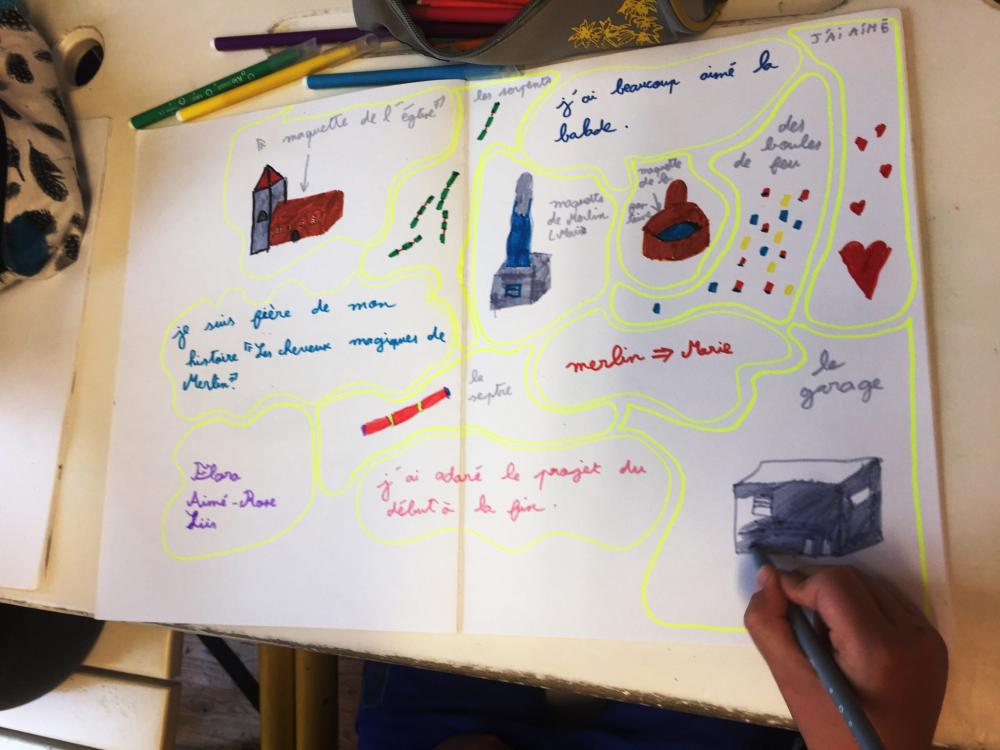 J'AI AIMÉ
« maquette de l'église »
les serpents
j'ai beaucoup aimé la
balade.
des
boules
de feu
maquette
de Merlin
/Marie
maquette
de la
je suis fière de mon
histoire « Les cheveux magiques de
Merlin »
merlin ⇒ Marie
le
septre
le
garage
Elora
Aimé-Rose
Liis
j'ai adoré le projet du
début à la fin.